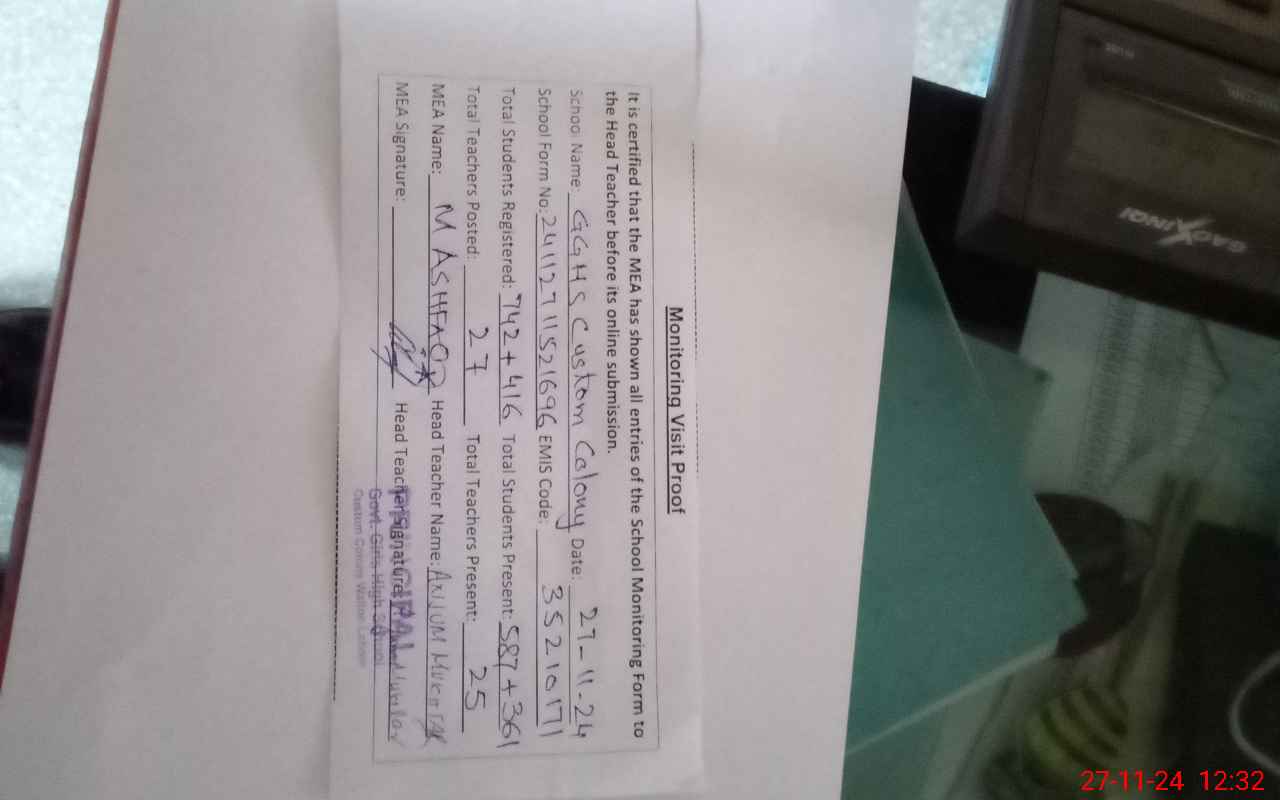 Monitoring Visit Proof
It is certified that the MEA has shown all entries of the School Monitoring Form to
the Head Teacher before its online submission.
School Name: GGHS Custom Colony Date: 27-11-24
School Form No: 24112711521696 EMIS Code: 35210171
Total Students Registered: 742+416 Total Students Present: 587+361
Total Teachers Posted: 27 Total Teachers Present: 25
MEA Name: M ASHFAQ Head Teacher Name: ANJUM MUKHTAR
MEA Signature: Head Teacher Signature:
PRINCIPAL
Govt. Girls High School
Custom Colony Walton Lahore
27-11-24 12:32